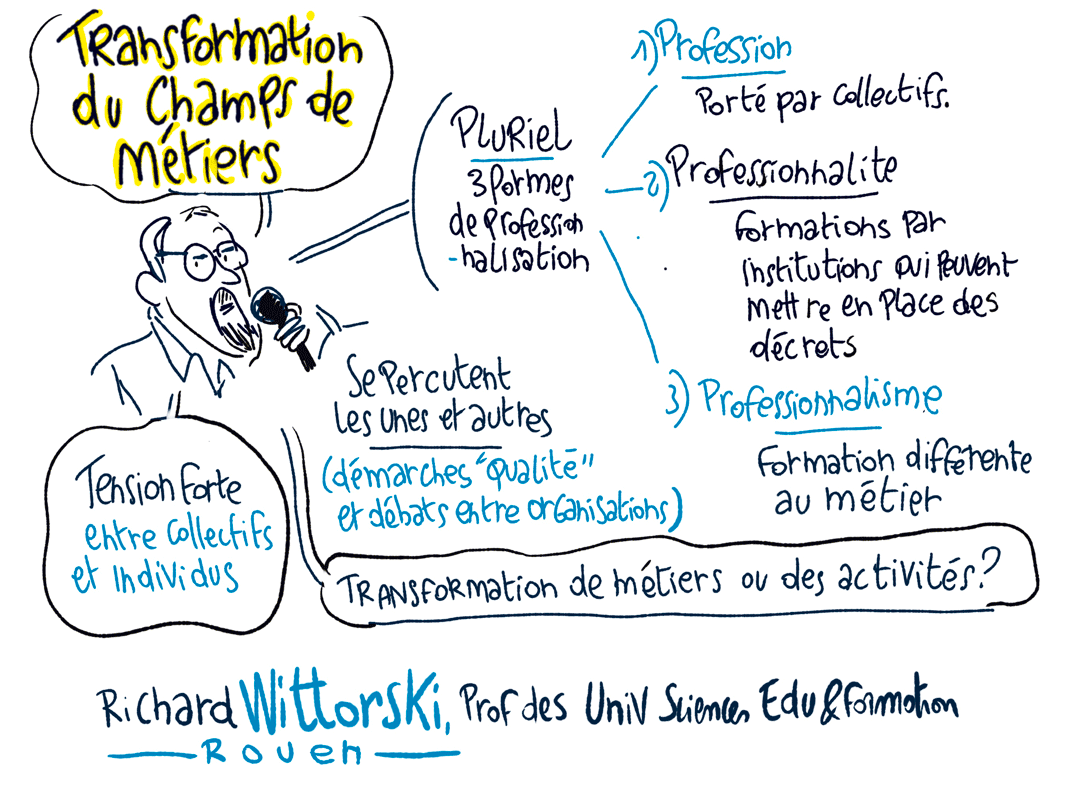 TRansformation
du Champs de
métiers
PLURiel
3 formes
de profession
-nalisation
1) Profession
Porté par collectifs.
2) Professionnalite
formations par
institutions qui peuvent
mettre en place des
décrets
3) Professionnalisme
formation différente
au métier
Se Percutent
les unes et autres
(démarches "qualité"
et débats entre organisations)
Tension forte
entre collectifs
et individus
TRANSformation de métiers ou des activités?
Richard Wittorski, Prof des Univ Sciences Edu & formation
Rouen